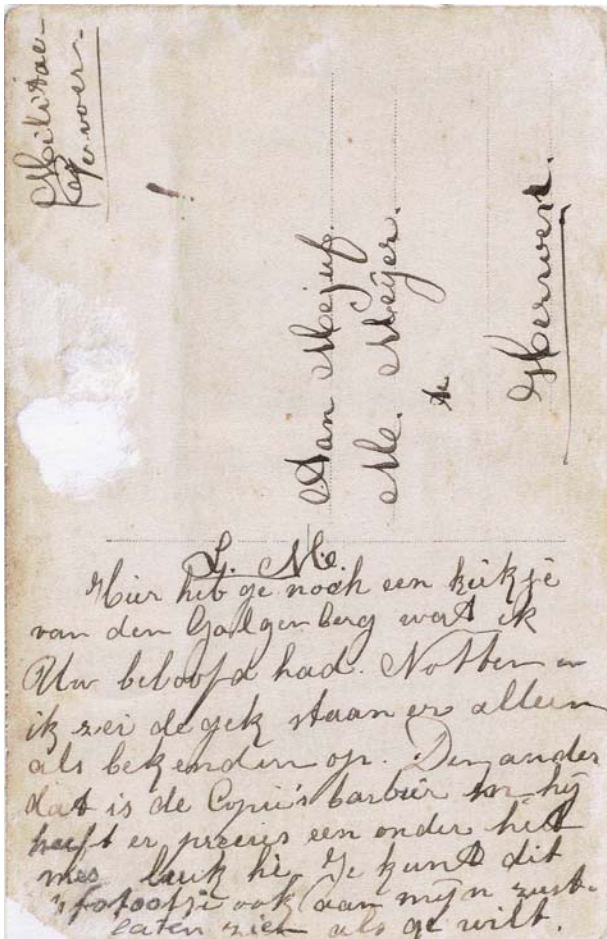 Militair
vervoer
Aan Mejuf.
Me. Meijer.
te
Herwen.
L. Me.
Hier heb ge noch een kiekje
van den Galgenberg wat ik
Uw beloofd had. Notten en
ik zei de gek staan er alleen
als bekenden op. Den ander
dat is de Copie's barbier en hij
heeft er precies een onder het
mes leuk hè. Je kunt dit
fotootje ook aan mijn zust-
laten zien als ge wilt.